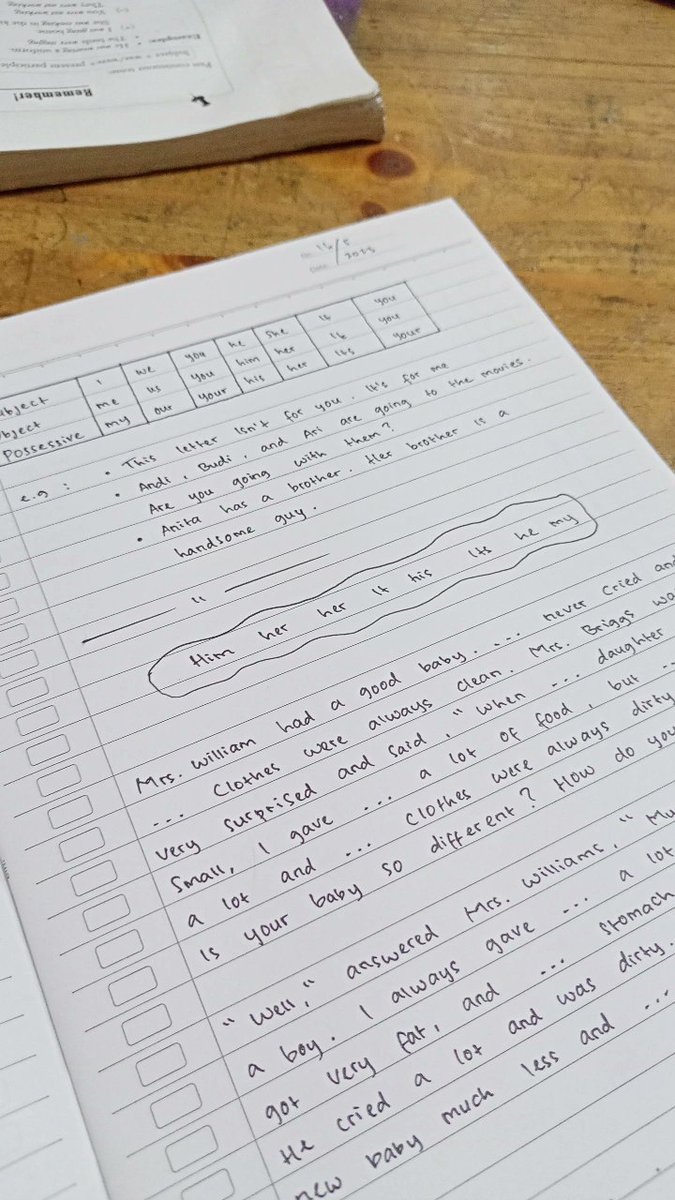 Remember!
Past continuous tense:
Subject + was/were + present participle
Examples:
He was wearing a uniform.
I was going home.
15/5
Date 2025
Subject I we you he she it you
Object me us you him her it you
Possessive my our your his her its your
e.g : • This letter isn't for you. It's for me
• Andi, Budi, and Ari are going to the movies.
Are you going with them?
• Anita has a brother. Her brother is a
handsome guy.
Him her her it his its he my
Mrs. William had a good baby. ... never cried and
... clothes were always clean. Mrs. Briggs
very surprised and said, "when ... daughter
small, I gave ... a lot of food, but ...
a lot and ... clothes were always dirty
Is your baby so different? How do you
"Well," answered Mrs. Williams, "
a boy. I always gave ... a lot
got very fat, and ... stomach
He cried a lot and was dirty.
new baby much less and ...